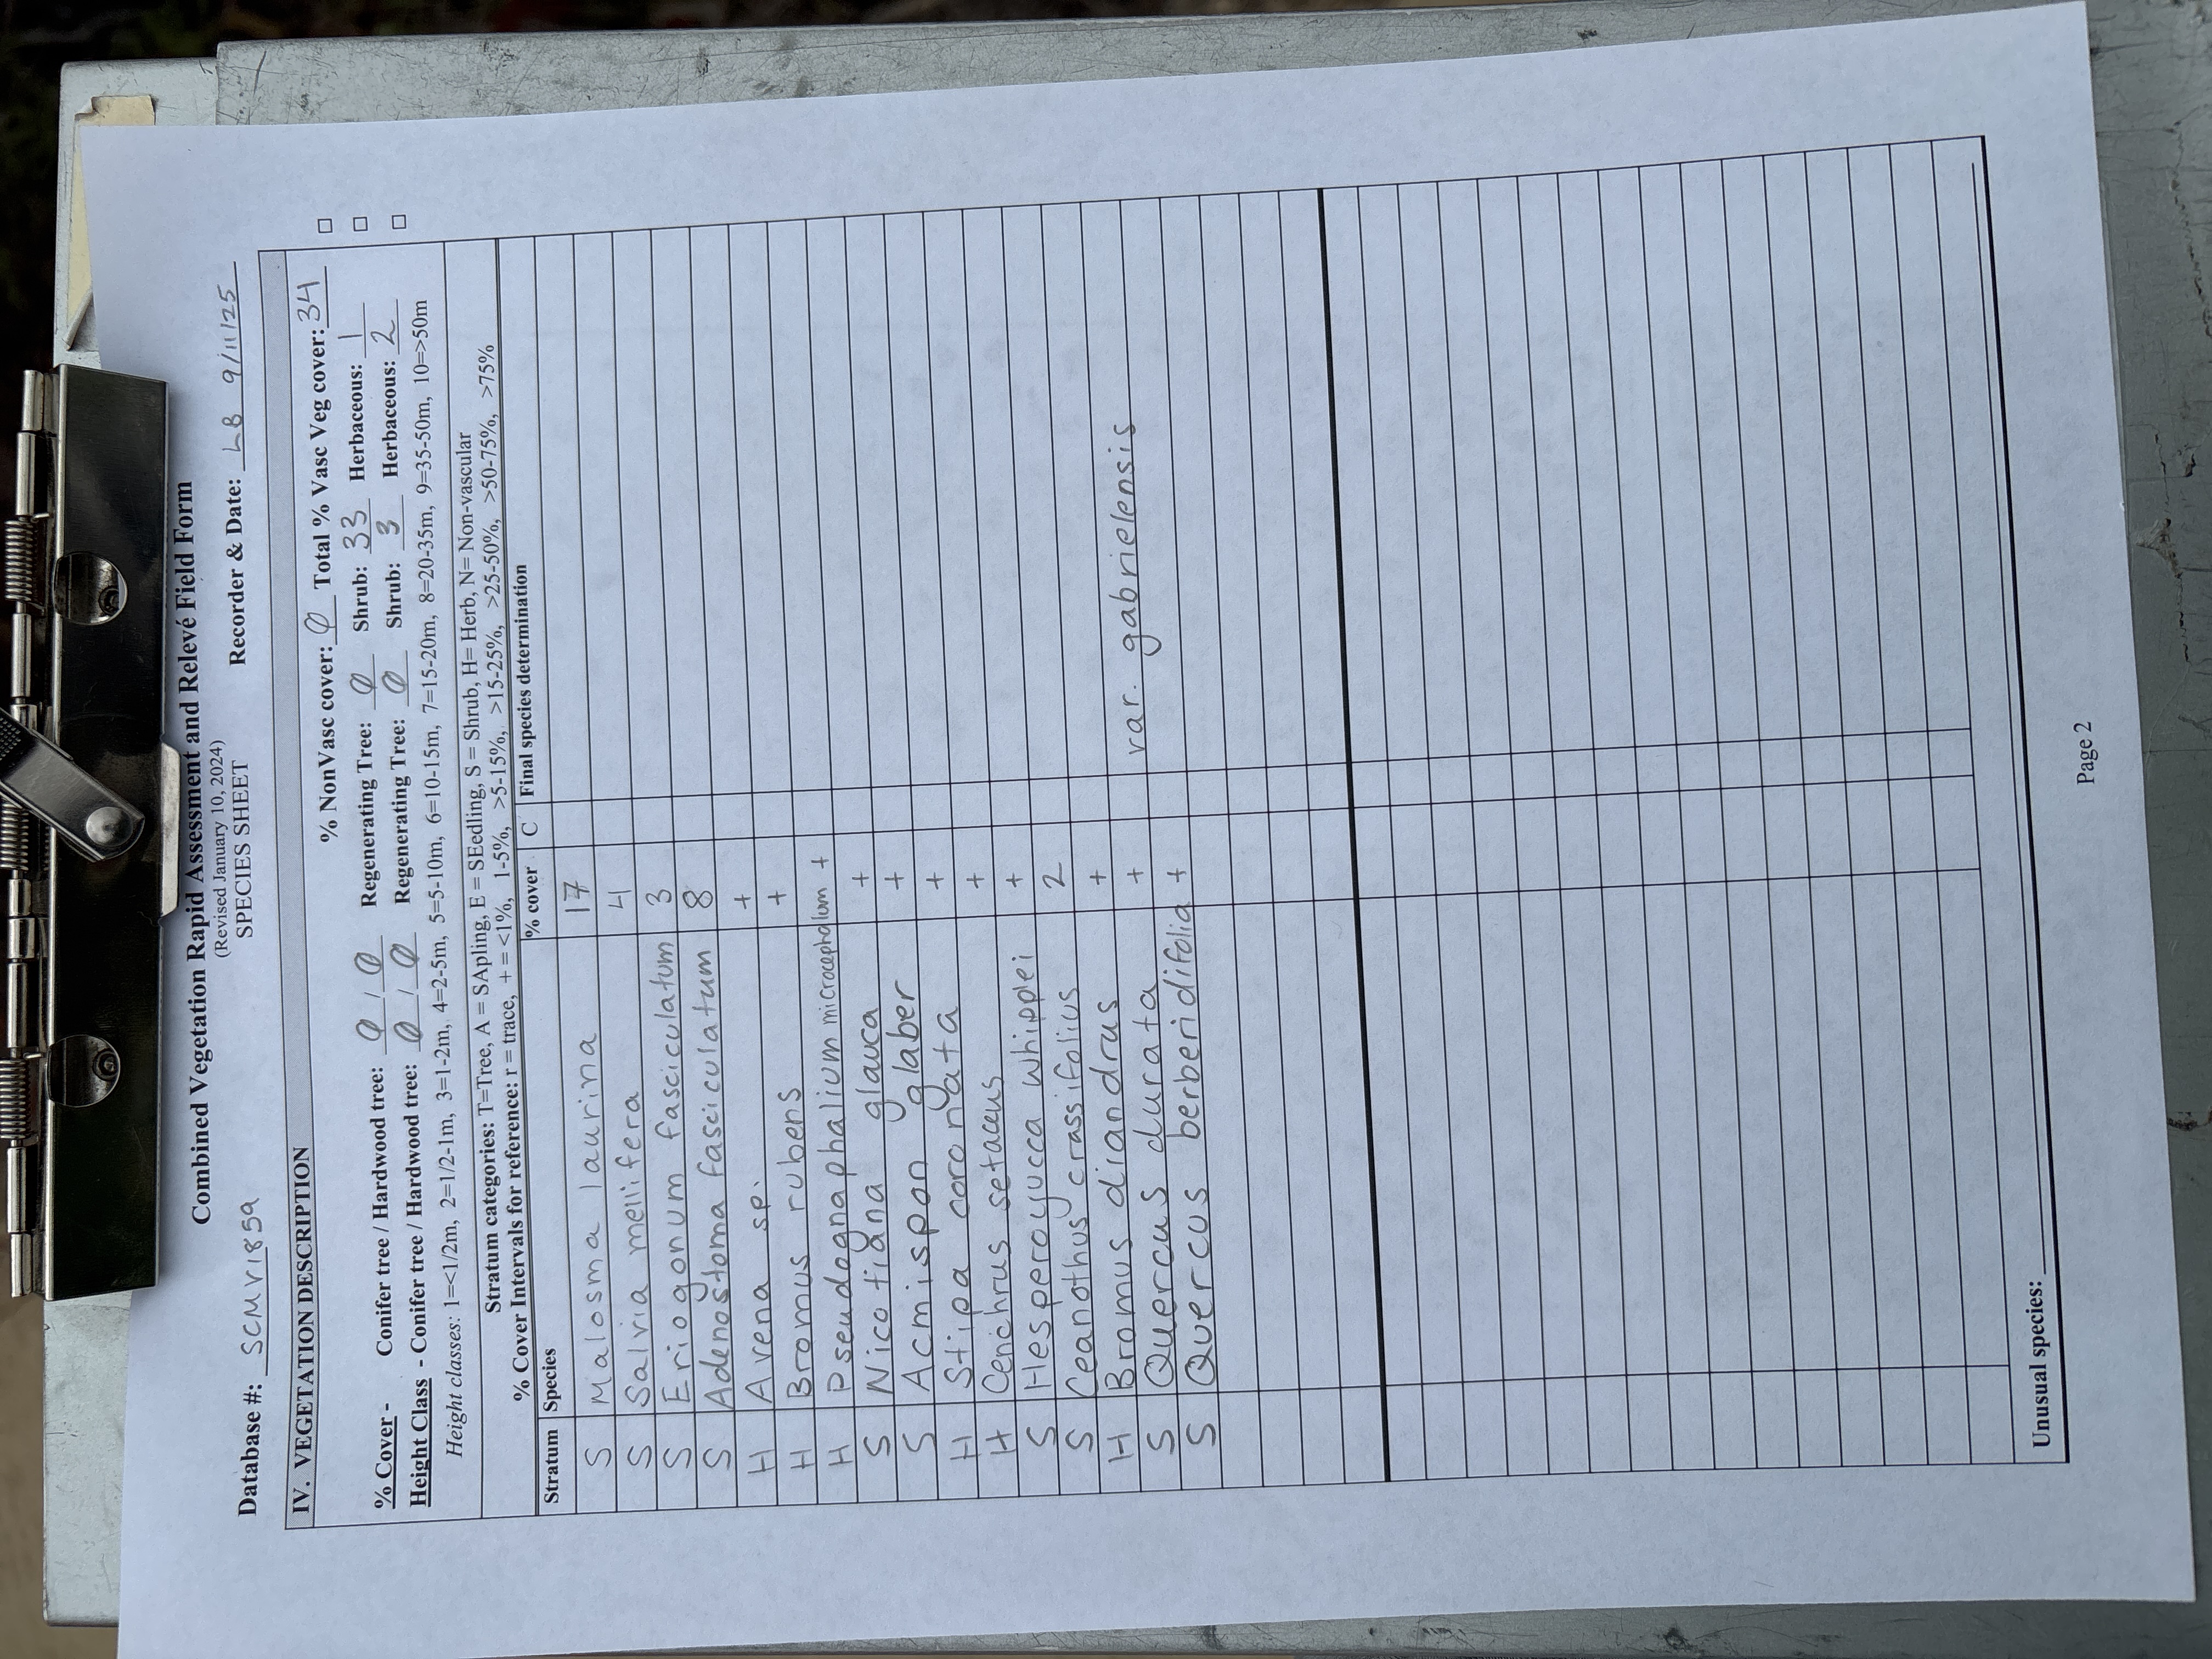 Combined Vegetation Rapid Assessment and Relevé Field Form
(Revised January 10, 2024)
SPECIES SHEET
Database #: SCMV1859 Recorder & Date: LB 9/11/25
IV. VEGETATION DESCRIPTION
% NonVasc cover: Ø Total % Vasc Veg cover: 34
% Cover - Conifer tree / Hardwood tree: Ø / Ø Regenerating Tree: Ø Shrub: 33 Herbaceous: 1
Height Class - Conifer tree / Hardwood tree: Ø / Ø Regenerating Tree: Ø Shrub: 3 Herbaceous: 2
Height classes: 1=<1/2m, 2=1/2-1m, 3=1-2m, 4=2-5m, 5=5-10m, 6=10-15m, 7=15-20m, 8=20-35m, 9=35-50m, 10=>50m
Stratum categories: T=Tree, A = SApling, E = SEedling, S = Shrub, H= Herb, N= Non-vascular
% Cover Intervals for reference: r = trace, + = <1%, 1-5%, >5-15%, >15-25%, >25-50%, >50-75%, >75%
Stratum Species % cover C Final species determination
S Malosma laurina 17
S Salvia mellifera 4
S Eriogonum fasciculatum 3
S Adenostoma fasciculatum 8
H Avena sp. +
H Bromus rubens +
H Pseudognaphalium microcephalum +
S Nicotiana glauca +
S Acmispon glaber +
H Stipa coronata +
H Cenchrus setaceus +
S Hesperoyucca whipplei +
S Ceanothus crassifolius 2
H Bromus diandrus +
S Quercus durata + var. gabrielensis
S Quercus berberidifolia +
Unusual species:
Page 2